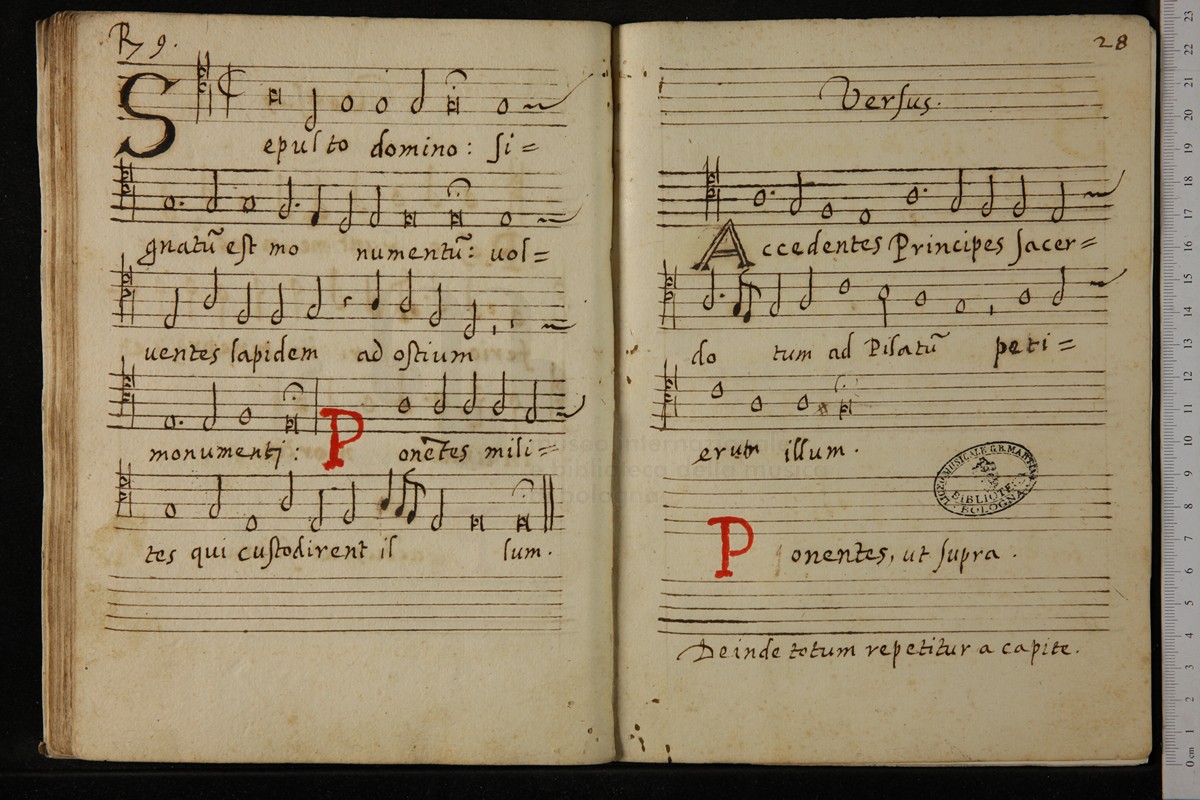 R 9.
Sepulto domino: si=
gnatũ est mo numentũ: uol=
uentes lapidem ad ostium
monumenti: Ponẽtes mili=
tes qui custodirent il lum.
28
Versus.
Accedentes Principes sacer=
do tum ad Pilatũ peti=
erunt illum.
Ponentes, ut supra.
Deinde totum repetitur a capite.
LICEO MUSICALE G.B. MARTINI
BIBLIOTECA
BOLOGNA
museo internazionale
e biblioteca della musica
di bologna
0 cm 1 2 3 4 5 6 7 8 9 10 11 12 13 14 15 16 17 18 19 20 21 22 23